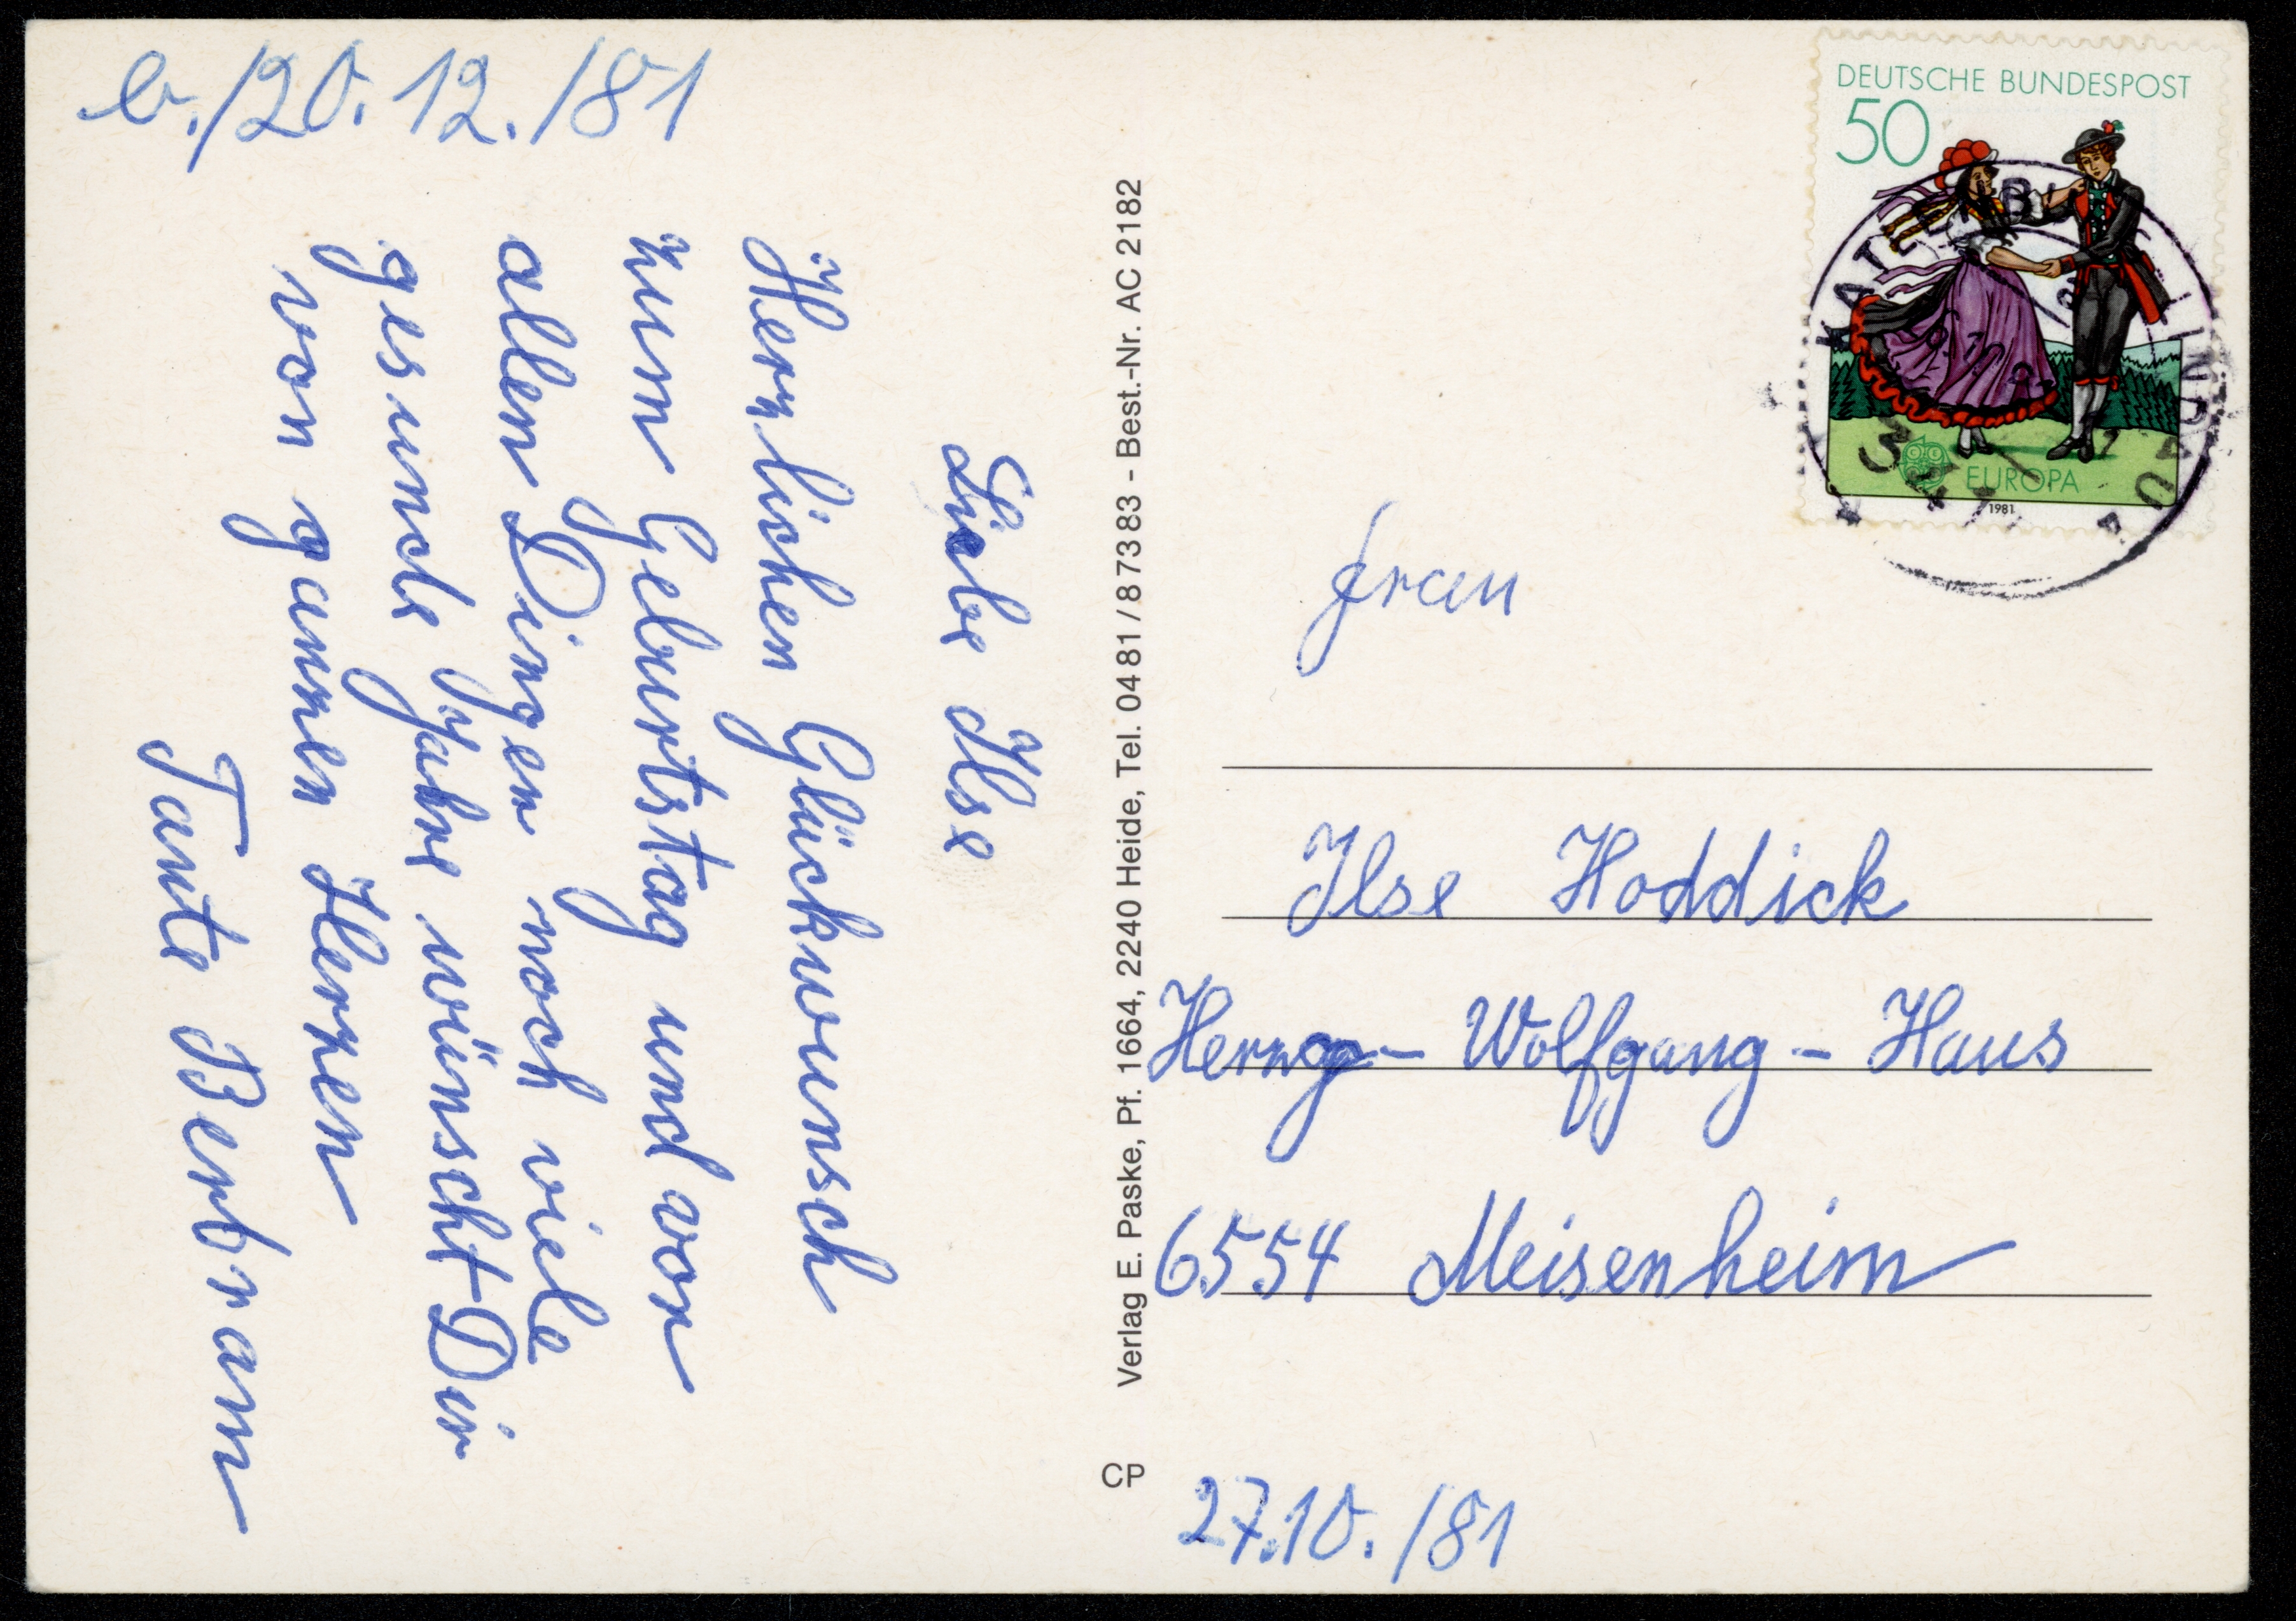 b./20.12./81
Liebe Ilse
Herzlichen Glückwunsch
zum Geburtstag und vor
allen Dingen noch viele
gesunde Jahre wünscht Dir
von ganzen Herzen
Tante Berbram
Verlag E. Paske, Pf. 1664, 2240 Heide, Tel. 04 81 / 8 73 83 - Best.-Nr. AC 2182
CP
DEUTSCHE BUNDESPOST
50
EUROPA
1981
Frau
Ilse Hoddick
Herzog - Wolfgang - Haus
6554 Meisenheim
27.10./81